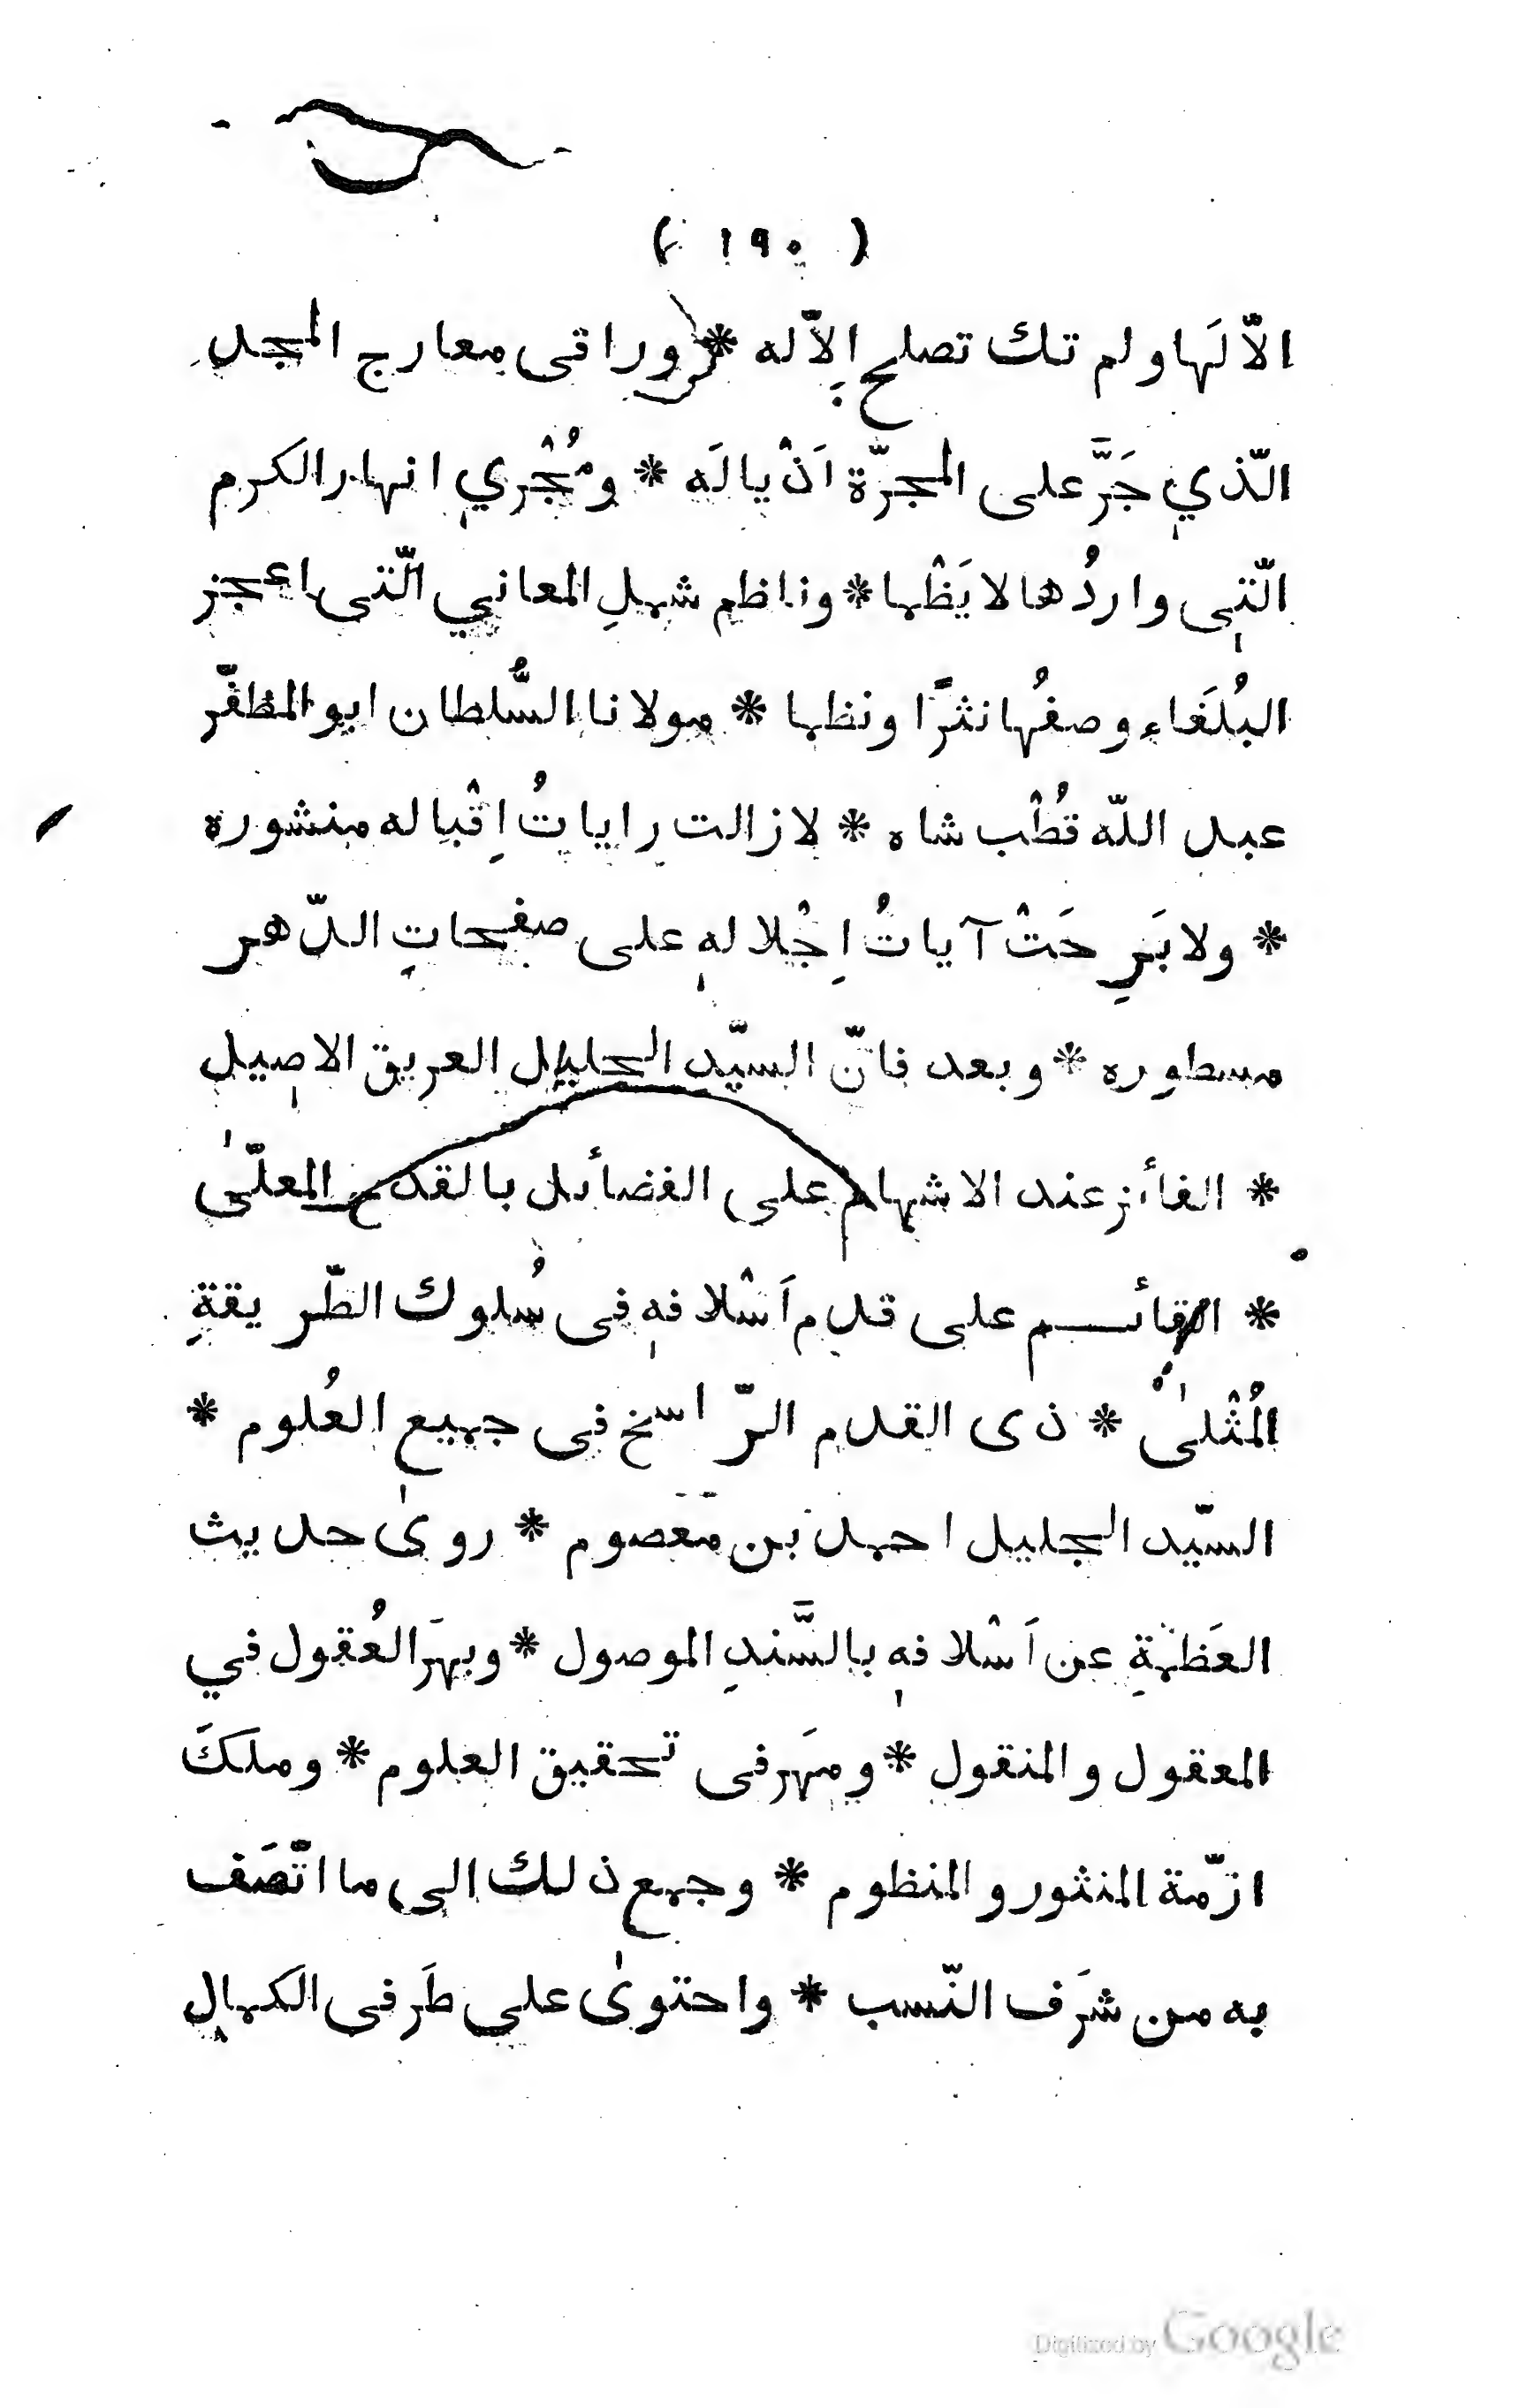 ( ١٩٠ )
الاّ لَها ولم تك تصلح اِلاّ له * وراقى معارج المجدِ
الّذي جَرَّ على المجرّة اَذْيالَه * ومُجْري انهار الكرم
الّتي واردُها لا يَظْما * وناظم شملِ المعاني الّتى اعجز
البُلَغَاء وصفُها نثرًا ونظما * مولانا السُّلطان ابو المظفّر
عبد اللّه قُطْب شاه * لا زالت راياتُ اِقْباله منشوره
* ولا بَرِحَتْ آياتُ اِجْلالهٖ على صفحاتِ الدّهر
مسطوره * وبعد فانّ السيّد الجليل العريق الاصيل
* الفائز عند الاشهام على الفضائل بالقدح المعلّىٰ
* القائم على قدم اَسْلافهٖ فى سُلوك الطّريقةِ
المُثْلىٰ * ذى القدم الرّاسخ فى جميع العُلوم *
السيّد الجليل احمد بن مَعْصوم * روىٰ حديث
العَظَمَةِ عن اَسْلافهٖ بالسَّندِ الموصول * وبهَر العُقول في
المعقول والمنقول * ومهَر فى تحقيق العلوم * وملكَ
ازمّة المنثور والمنظوم * وجمع ذلك الى ما اتّصَف
به من شرَف النّسب * واحتوىٰ على طَرفى الكمال
Digitized by Google